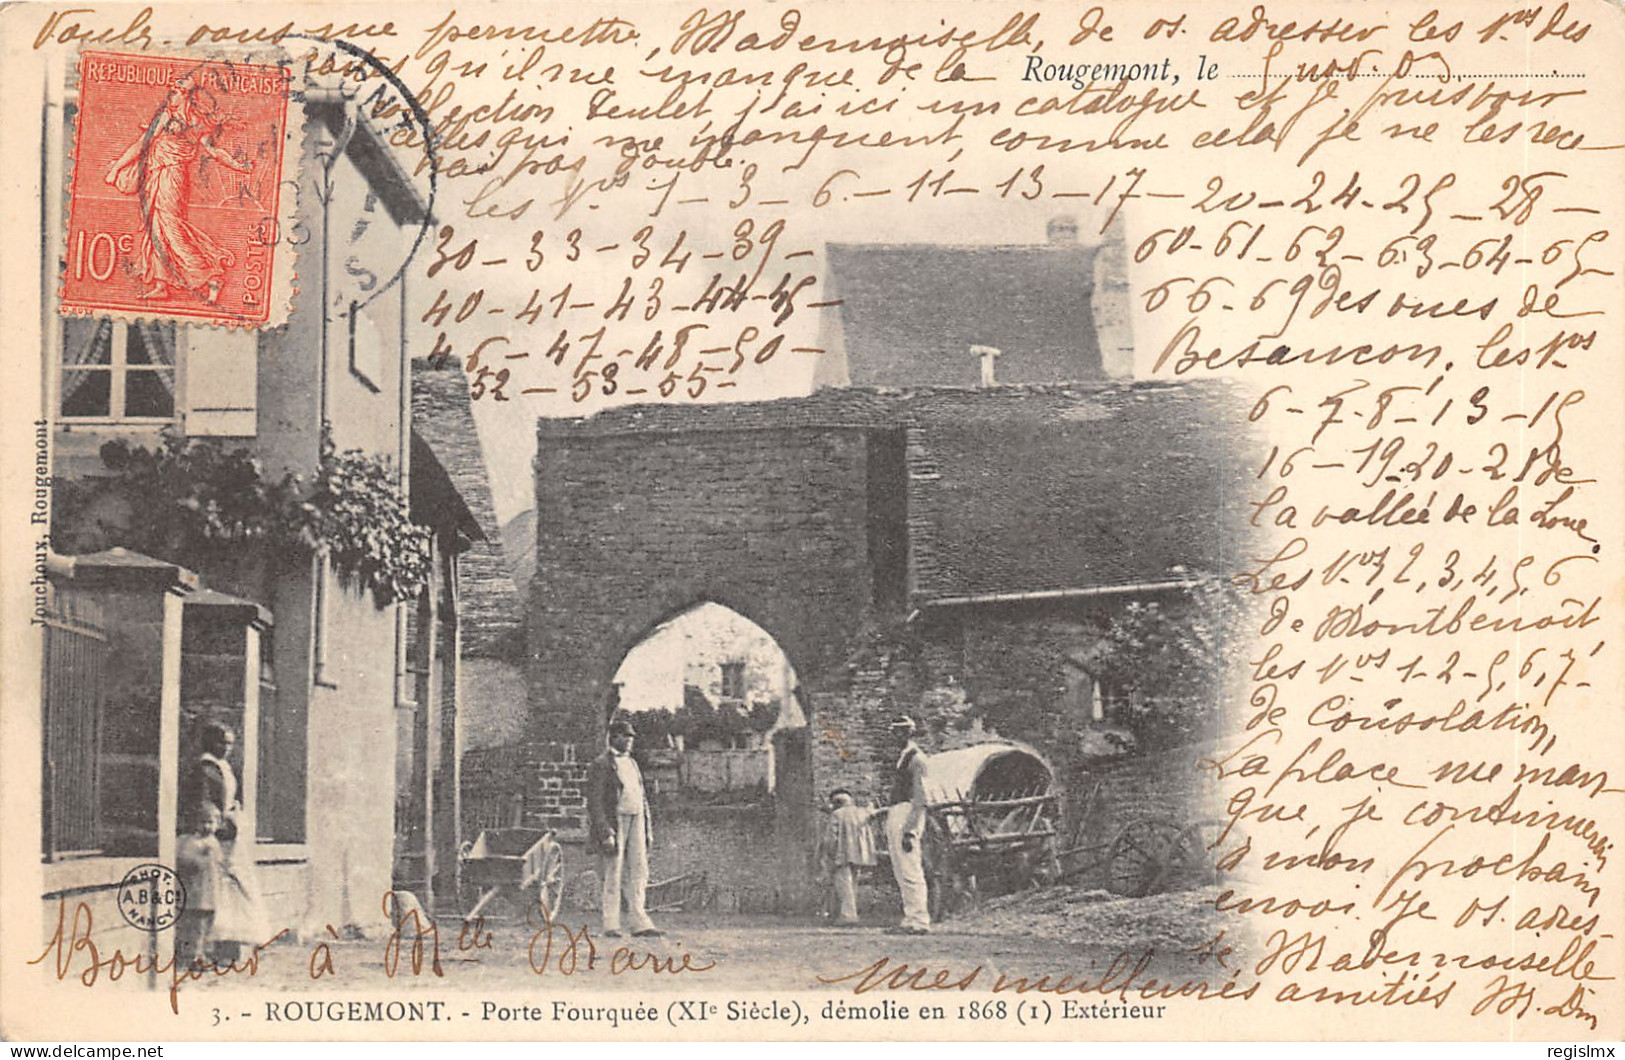 Voulez-vous me permettre, Mademoiselle, de vs. adresser les Nos des
cartes qu'il me manque de la
Rougemont, le 5 nov. 03
collection Teulet j'ai ici un catalogue et je puis voir
celles qui me manquent, comme cela je ne les rece
vai pas double.
les Nos 1 - 3 - 6 - 11 - 13 - 17 - 20 - 24 - 25 - 28 -
30 - 33 - 34 - 39 -
40 - 41 - 43 - 44 - 45 -
46 - 47 - 48 - 50 -
52 - 53 - 55 -
60 - 61 - 62 - 63 - 64 - 65 -
66 - 69 des vues de
Besançon, les Nos
6 - 7 - 8 - 13 - 15
16 - 19 - 20 - 21 de
la vallée de la Loue.
Les Nos 1, 2, 3, 4, 5, 6
de Montbenoît,
les Nos 1 - 2 - 5, 6, 7 -
de Consolation,
La place me man
que, je continuerai
à mon prochain
envoi. Je vs. adres-
se, Mademoiselle
mes meilleures amitiés M. Din
Bonjour à Mlle Marie
REPUBLIQUE FRANÇAISE
10c
POSTES
ROUGEMONT
NOV
03
Jouchoux, Rougemont
PHOT.
A.B & Cie
NANCY
3. - ROUGEMONT. - Porte Fourquée (XIe Siècle), démolie en 1868 (1) Extérieur
delcampe.net
regislmx